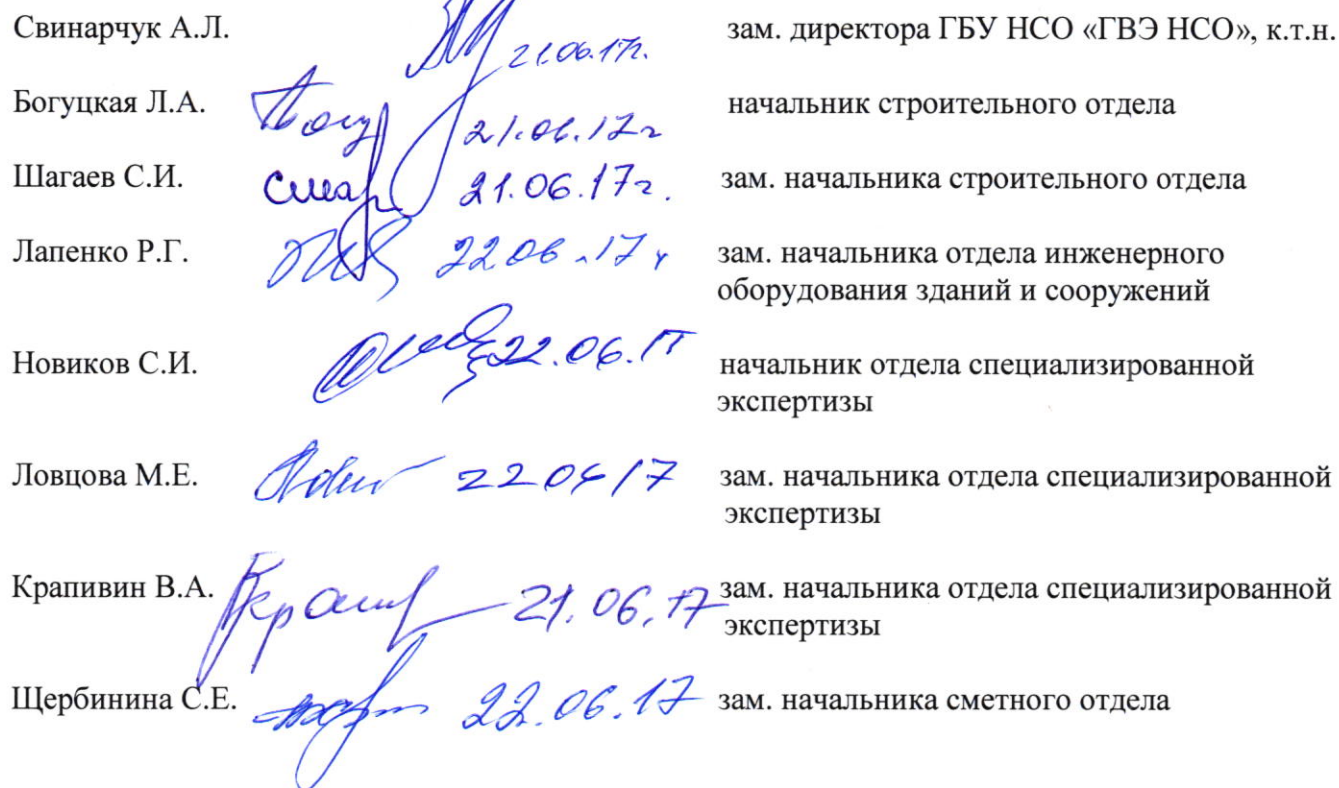 Свинарчук А.Л. 21.06.17г. зам. директора ГБУ НСО «ГВЭ НСО», к.т.н.
Богуцкая Л.А. 21.06.17г начальник строительного отдела
Шагаев С.И. 21.06.17г. зам. начальника строительного отдела
Лапенко Р.Г. 22.06.17г зам. начальника отдела инженерного
оборудования зданий и сооружений
Новиков С.И. 22.06.17 начальник отдела специализированной
экспертизы
Ловцова М.Е. зам. начальника отдела специализированной
экспертизы
Крапивин В.А. 21.06.17 зам. начальника отдела специализированной
экспертизы
Щербинина С.Е. 22.06.17 зам. начальника сметного отдела